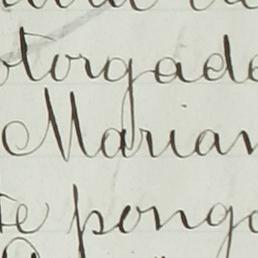 otorgada
Marian
te ponga